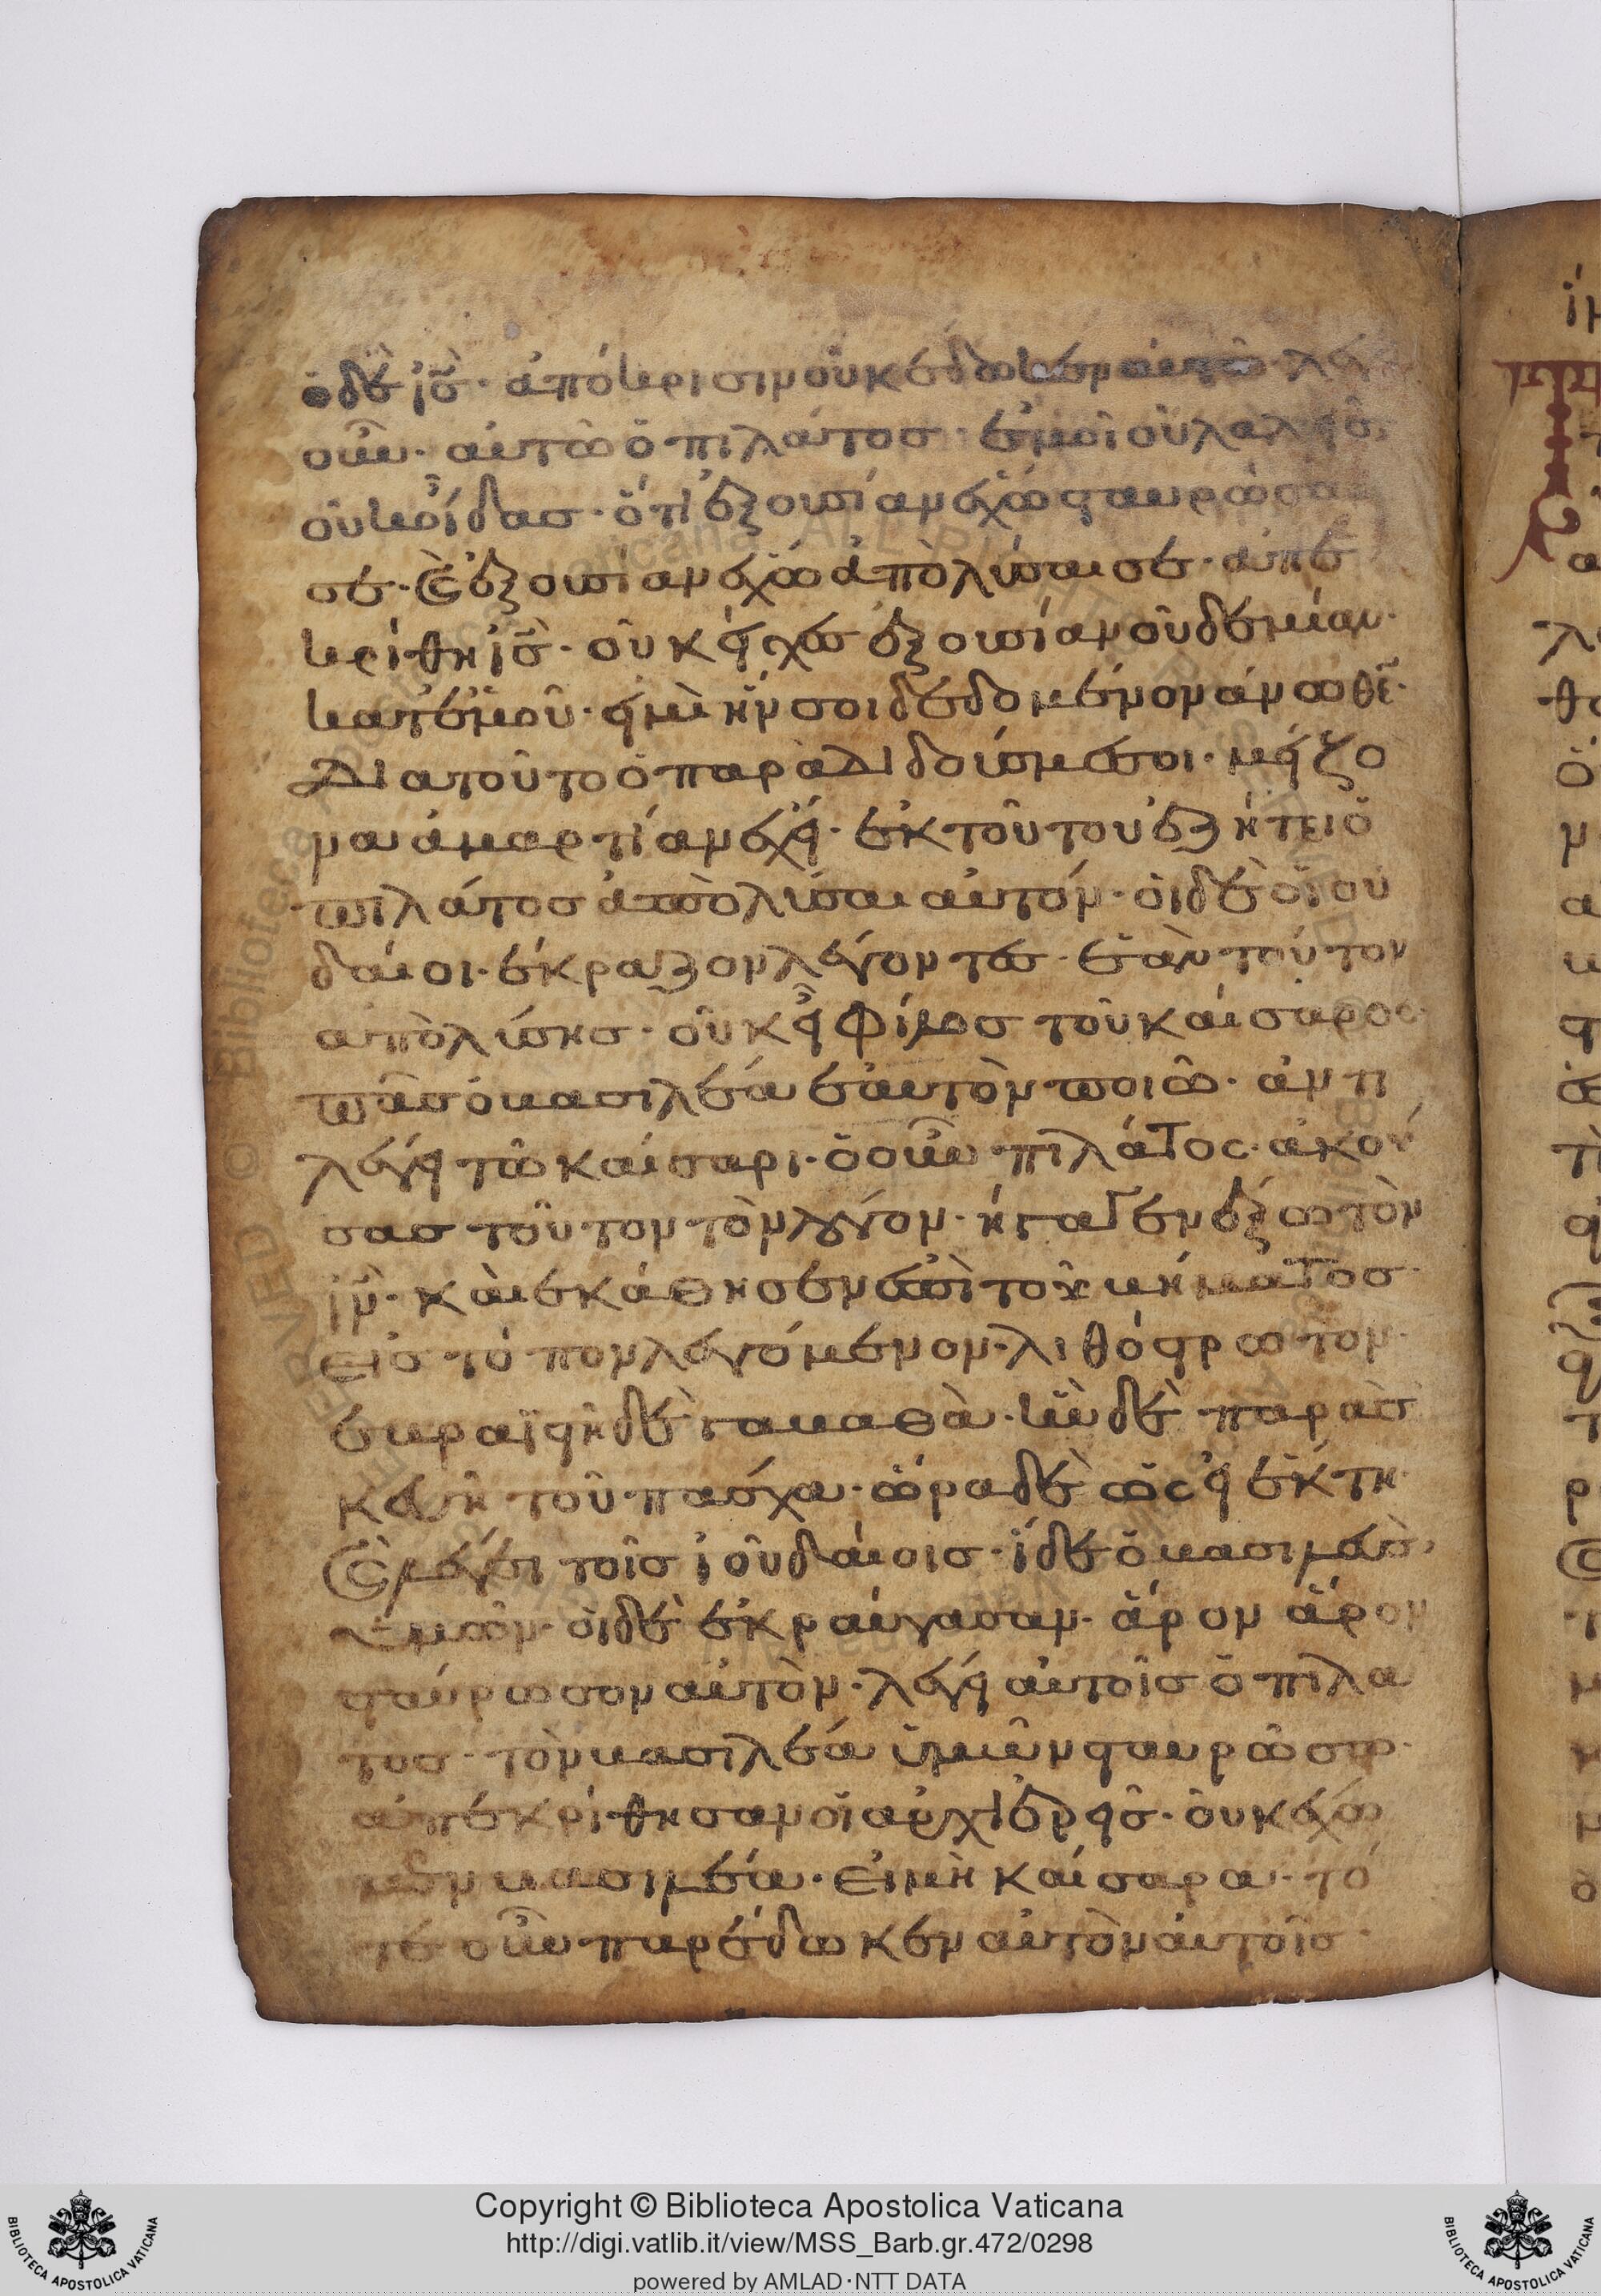 ὁ δὲ ἰς̄· ἀπόκρισιν οὐκ έδωκεν αυτῶ· λέ
οὖν· αὐτῶ ὁ πιλάτοσ· ἐμοὶ οὐ λαλεῖσ
οὐκ οἶδασ· ὅτι ἐξουσίαν έχω σταυρῶσαι
σέ· καὶ ἐξουσίαν έχω ἀπὸλύσαι σέ· ἀπε
κρίθη ἰς̄· οὐκ είχεσ ἐξουσίαν οὐδεμίαν·
κατ' ἐμοῦ· εἰ μὴ ἦν σοι δεδομένον άνωθε̄·
Διατοῦτο ὁ παρὰδιδούσ με σοι· μείζο
να ἁμαρτίαν έχει· ἐκ τοῦτου ἐζήτει ὁ
πιλάτοσ ἀπὸλύσαι αὐτόν· ὁι δὲ ὁϊ ου
δαίοι· έκραζον λέγοντεσ· ἐὰν τούτον
ἀπὸλύσησ· οὐκ εἶ φίλοσ τοῦ καίσαροσ·
πᾶσ ὁ βασιλέα ἑαυτὸν ποιῶ· ἀντι
λέγει τῶ καίσαρι· ὁ οὖν πιλάτος· ἀκού
σασ τοῦτον τὸν λόγον· ήγαγεν έξω τὸν
ἰν̄· καὶ εκάθησεν ἐπὶ τοῦ βήματοσ·
εἰσ τόπον λεγόμενον· λιθόστρωτον·
ἑβραϊστὴ δὲ γαβαθὰ· ἦν δὲ παρασ
κευὴ τοῦ πάσχα· ὥρα δὲ ὡς εἰ ἕκτη·
καὶ λέγει τοῖσ ἰοὐδαίοισ· ἴδε ὁ βασιλεὺσ
ὑμῶν· οἱ δὲ ἐκραύγασαν· ἆρον ἆρον
σταύρωσον αὐτὸν· λέγει αὐτοῖσ ὁ πιλα
τοσ· τὸν βασιλέα ὑμῶν σταυρῶσω·
ἀπεκρίθησαν οἱ ἀρχιἐρεῖσ· οὐκ έχω
μεν βασιλέα· εἰ μὴ καίσαρα· τό
τε οὖν παρέδωκεν αὐτὸν αὐτοῖσ·
Copyright © Biblioteca Apostolica Vaticana
http://digi.vatlib.it/view/MSS_Barb.gr.472/0298
powered by AMLAD·NTT DATA
BIBLIOTECA APOSTOLICA VATICANA
BIBLIOTECA APOSTOLICA VATICANA